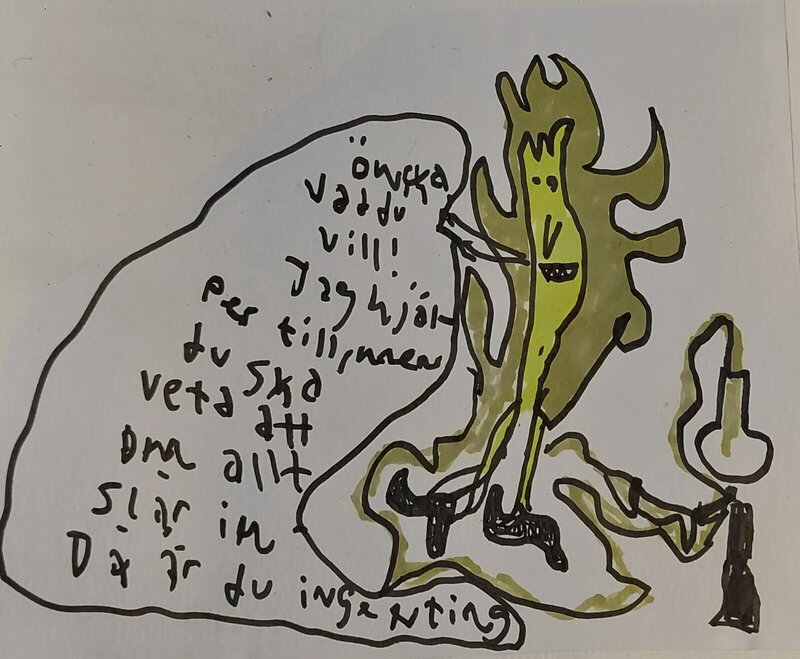 önska
vad du
vill!
jag hjäl-
per till, men
du ska
veta att
om allt
slår in
Då är du ingenting